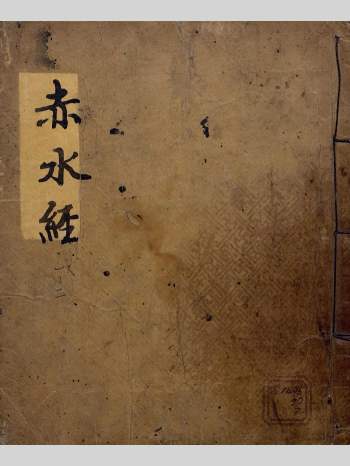 赤水經